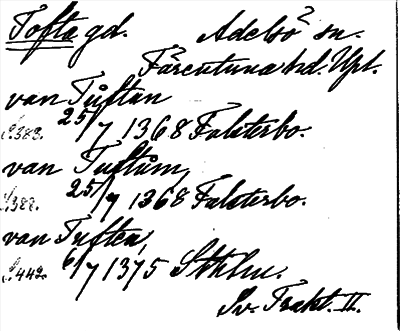 Tofta gd. Adelsö sn.
Färentuna hd. Upl.
van Tůftan
S.383. 25/7 1368 Falsterbo.
van Tuftům,
S.388. 25/7 1368 Falsterbo.
van Tuften,
S.442. 6/7 1375 Sthlm.
Sv. Trakt. II.